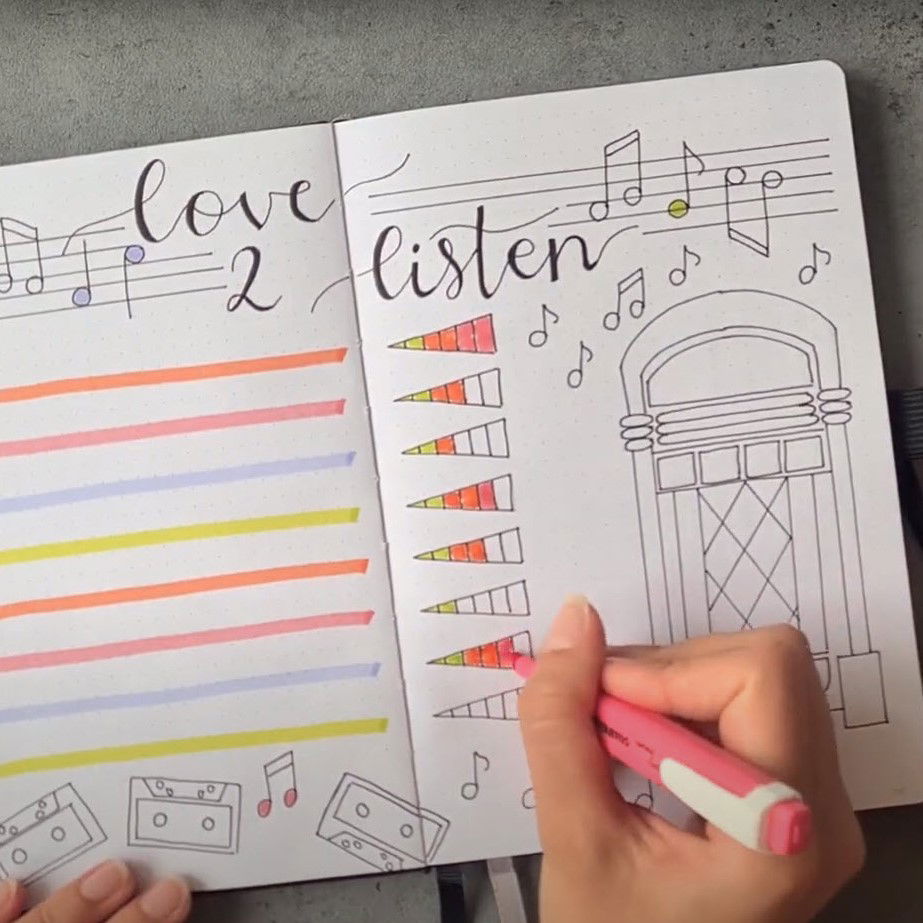 love
2
listen